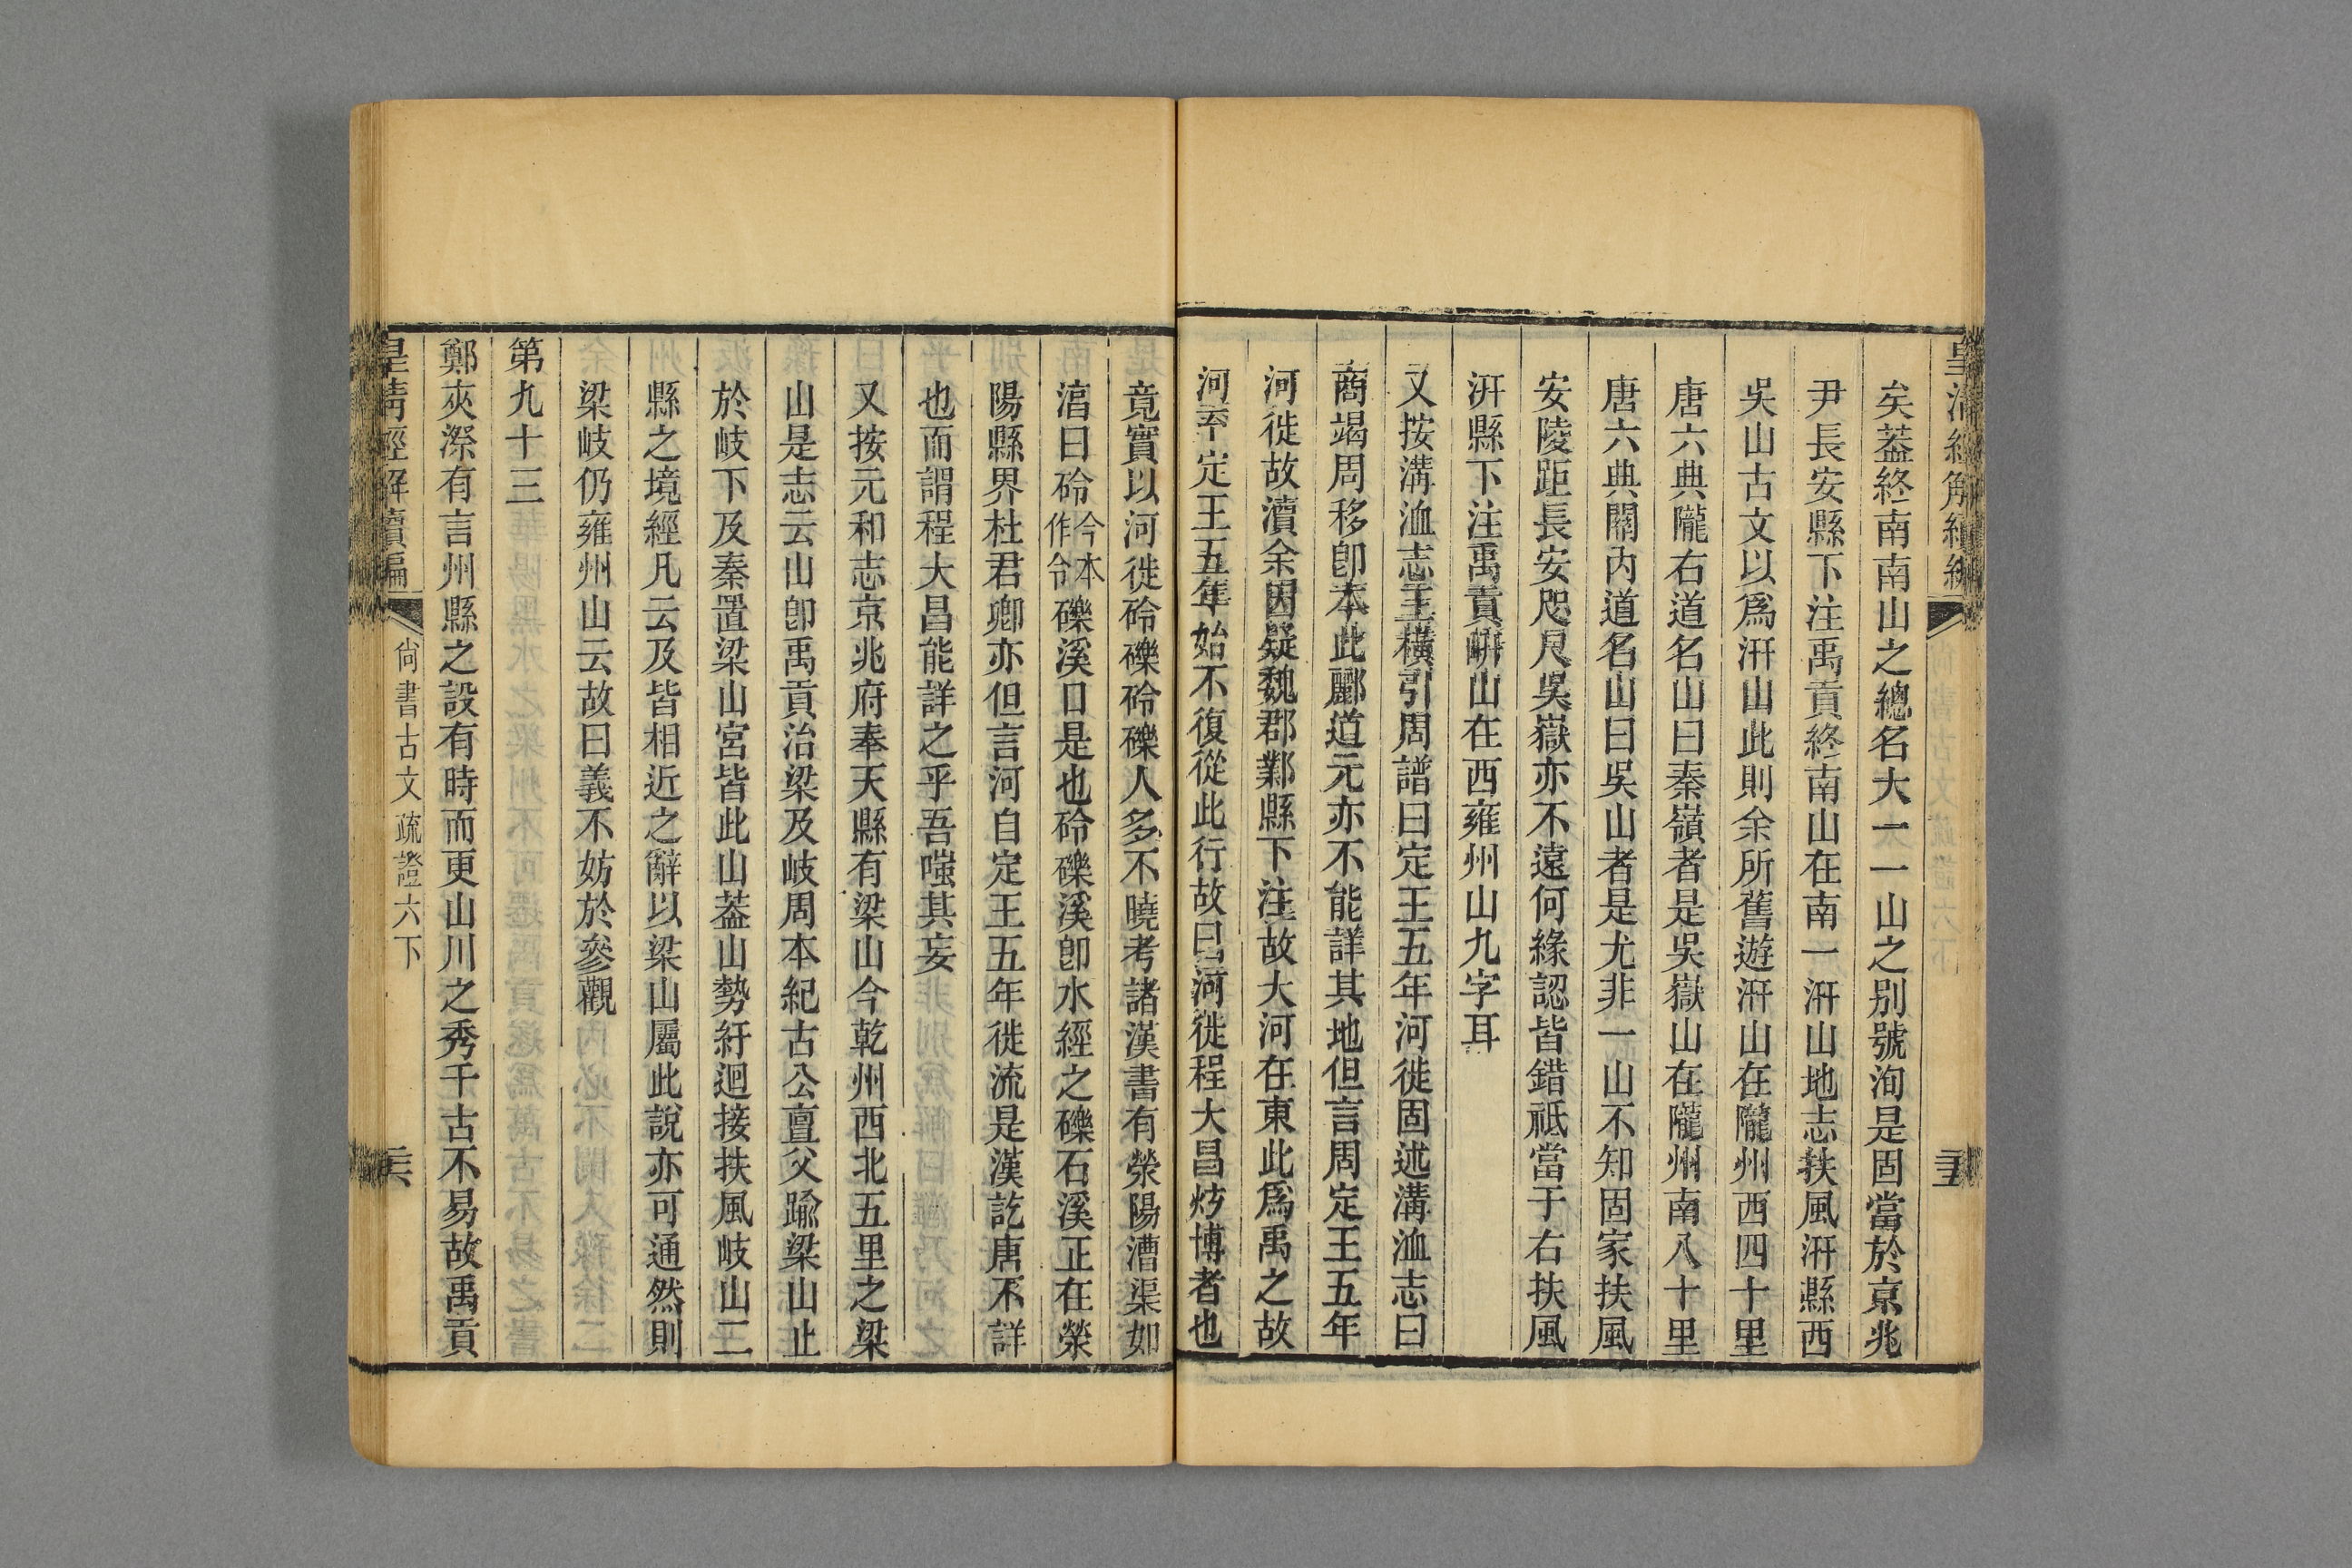 皇清經解續編
矣葢終南南山之總名大一一山之別號洵是固當於京兆
尹長安縣下注禹貢終南山在南一汧山地志扶風汧縣西
吳山古文以爲汧山此則余所舊遊汧山在隴州西四十里
唐六典隴右道名山曰秦嶺者是吳嶽山在隴州南八十里
唐六典關內道名山曰吳山者是尤非一山不知固家扶風
安陵距長安咫尺吳嶽亦不遠何緣認皆錯祗當于右扶風
汧縣下注禹貢岍山在西雍州山九字耳
又按溝洫志王橫引周譜曰定王五年河徙固述溝洫志曰
商竭周移卽本此酈道元亦不能詳其地但言周定王五年
河徙故瀆余因疑魏郡鄴縣下注故大河在東此爲禹之故
河至定王五年始不復從此行故曰河徙程大昌炫博者也
竟實以河徙砱礫砱礫人多不曉考諸漢書有滎陽漕渠如
淳曰砱今本作令礫溪口是也砱礫溪卽水經之礫石溪正在滎
陽縣界杜君卿亦但言河自定王五年徙流是漢訖唐不詳
也而謂程大昌能詳之乎吾嗤其妄
又按元和志京兆府奉天縣有梁山今乾州西北五里之梁
山是志云山卽禹貢治梁及岐周本紀古公亶父踰梁山止
於岐下及秦置梁山宮皆此山葢山勢紆迴接扶風岐山二
縣之境經凡云及皆相近之辭以梁山屬此說亦可通然則
梁岐仍雍州山云故曰義不妨於參觀
第九十三
鄭夾漈有言州縣之設有時而更山川之秀千古不易故禹貢
皇清經解續編
尙書古文疏證六下